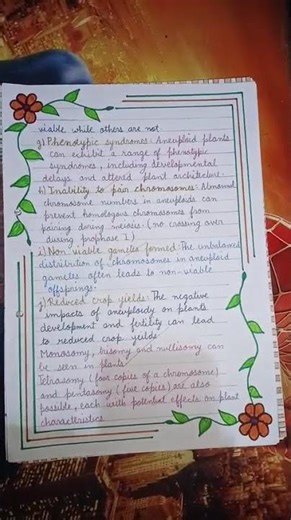 viable while others are not
g) Phenotypic syndromes: Aneuploid plants
can exhibit a range of phenotypic
syndromes, including developmental
delays and altered plant architecture.
h) Inability to pair chromosomes: Abnormal
chromosome numbers in aneuploids can
prevent homologous chromosomes from
pairing during meiosis (no crossing over
during prophase 1)
i) Non viable gametes formed: The unbalanced
distribution of chromosomes in aneuploid
gametes often leads to non-viable
offsprings.
j) Reduced crop yields: The negative
impacts of aneuploidy on plants
development and fertility can lead
to reduced crop yields.
Monosomy, trisomy and nullisomy can
be seen in plants.
Tetrasomy (four copies of a chromosome)
and pentasomy (five copies) are also
possible, each with potential effects on plant
characteristics